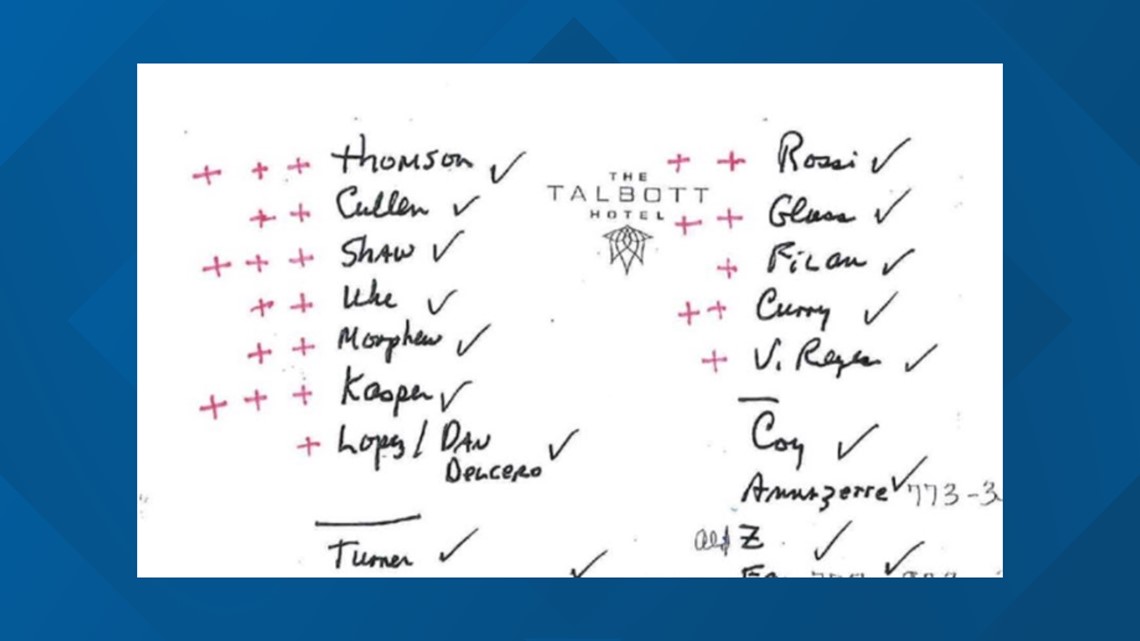 + + + Thomson ✓
+ + Cullen ✓
+ + + Shaw ✓
+ + Uhe ✓
+ + Morphew ✓
+ + + Kasper ✓
+ Lopez / DAN
Delicero ✓
Turner ✓
✓
THE
TALBOTT
HOTEL
+ + Rossi ✓
+ + Glass ✓
+ Filan ✓
+ + Curry ✓
+ V. Reyes ✓
Coy ✓
Annazette ✓ 773-3
Z ✓
✓